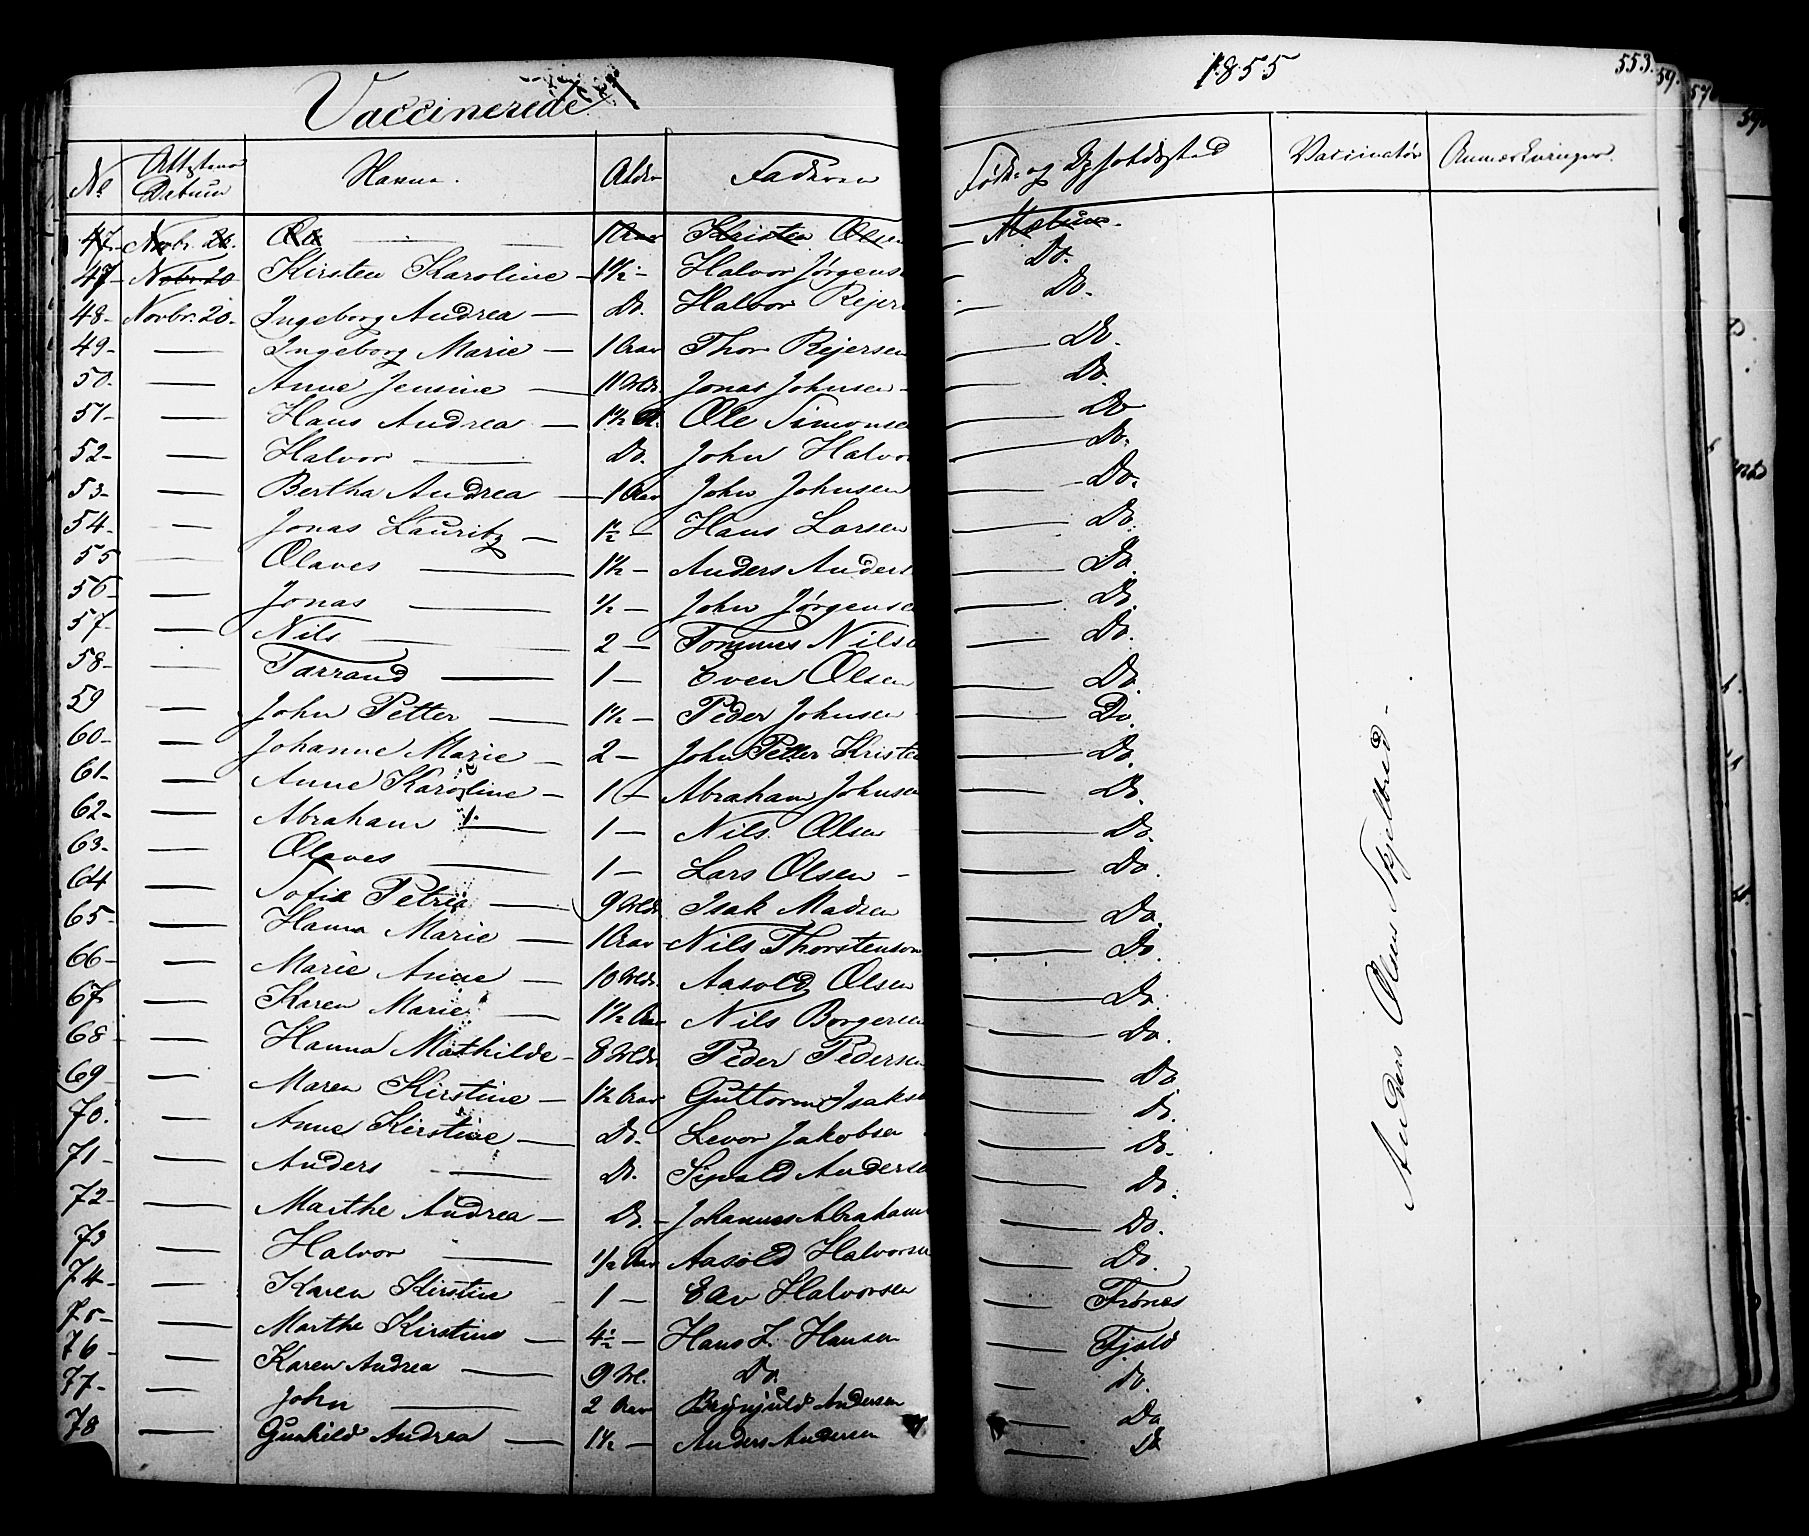 Vaccinerede
1855
553.
No Attestens Datum Navne. Alder Faderen Føde- og Opholdssted Vaccinatør Anmærkninger.
47 Novbr. 20. Ole 1 Aar Kristen Olsen Mælum.
47 Nobr. 20 Kirsten Karoline 1½ Halvor Jørgens Do.
48 Novbr. 20. Ingeborg Andrea Do. Halvor Rejer Do.
49 Ingeborg Marie 1 Aar Thor Rejersen Do.
50. Anne Jensine 11 Mdr. Jonas Johnsen Do.
51 Hans Andrea 1½ A. Ole Simonsen Do
52 Halvor Do. John Halvor Do.
53 Bertha Andrea 1 Aar John Johnsen Do.
54 Jonas Lauritz 1½ Hans Larsen Do.
55 Olaves 1½ Anders Anders Do.
56 Jonas ½ John Jørgense Do.
57 Nils 2 Tommes Nils Do.
58 Tarrand 1 Even Olsen Do.
59 John Petter 1½ Peder Johnsen Do.
60 Johanne Marie 2 John Petter Kriste Do.
61 Anne Karoline 1 Abraham Johnsen Do.
62 Abraham 1 Nils Olsen Do.
63 Olaves 1 Lars Olsen Do.
64 Sofie Petrea 9 Mdr Isak Madsen Do.
65 Hanna Marie 1 Aar Nils Thorstenson Do.
66 Marie Anne 10 Mdr. Aasold Olsen Do.
67 Karen Marie 1½ Aar Nils Borgersen Do.
68 Hanna Mathilde 8 Mdr Peder Pedersen Do
69 Maren Kirstine 1½ Aar Guttorm Isaks Do.
70. Anne Kirstine Do. Levor Jakobsen Do.
71 Anders Do. Sivald Anders Do.
72 Marthe Andrea Do. Johannes Abraham Do.
73 Halvor ½ Aar Aasold Halvorsen Do.
74 Karen Kirstine 1 Eav Halvorsen Frønes
75 Marthe Kirstine 4½ Hans J. Hansen Fjeld
76 Karen Andrea 9 M. Do. Do.
77 John 2 Aar Brynjuld Andersen Do
78 Gunhild Andrea 1½ Anders Andersen Do
Anders Olsen Skjelbred